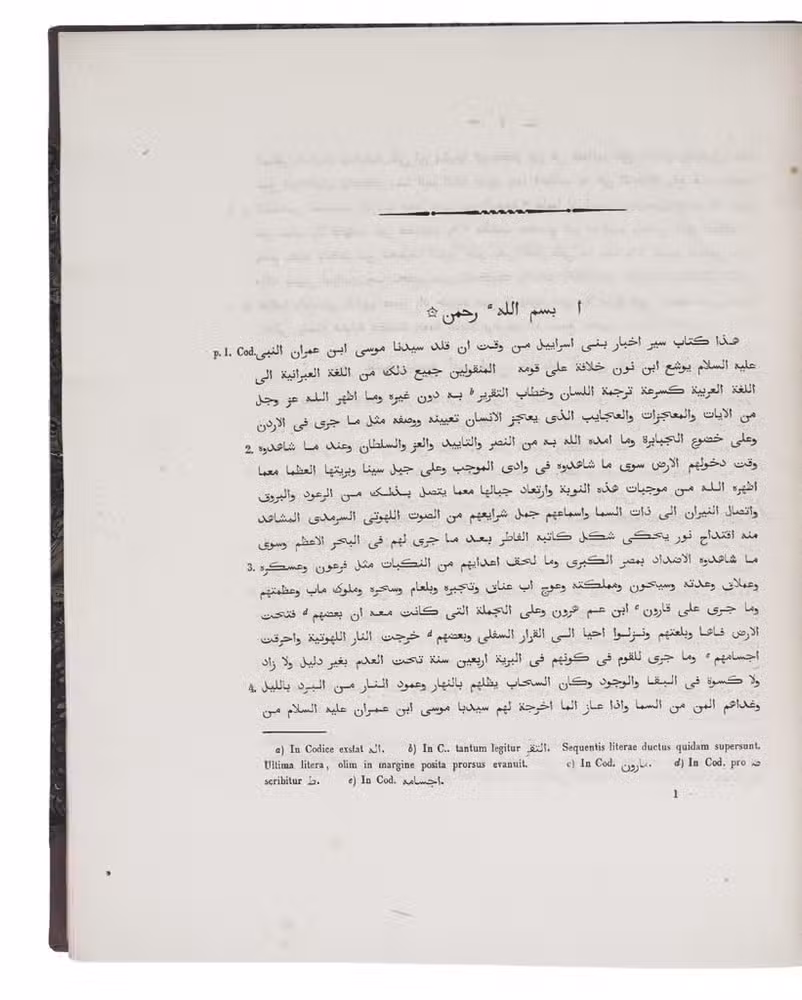 ا بسم الله a رحمن ☆
p. 1. Cod. هذا كتاب سير اخبار بنى اسراييل من وقت ان قلد سيدنا موسى ابن عمران النبى
عليه السلام يوشع ابن نون خلافة على قومه المنقولين جميع ذلك من اللغة العبرانية الى
اللغة العربية كسرعة ترجمة اللسان وخطاب التقرير b به دون غيره وما اظهر الله عز وجل
من الايات والمعجزات والعجايب الذى يعجز الانسان تعيينه ووصفه مثل ما جرى فى الاردن
2. وعلى خضوع الجبابرة وما امده الله به من النصر والتاييد والعز والسلطان وعند ما شاهدوه
وقت دخولهم الارض سوى ما شاهدوه فى وادى الموجب وعلى جبل سينا وبريتها العظما معما
اظهره الله من موجبات هذه النوبة وارتعاد جبالها معما يتصل بذلك من الرعود والبروق
واتصال النيران الى ذات السما واسماعهم جمل شرايعهم من الصوت اللهوتى السرمدى المشاهد
منه اقتداح نور يحكى شكل كاتبه الفاطر بعد ما جرى لهم فى البحر الاعظم وسوى
3. ما شاهدوه الاضداد بمصر الكبرى وما لحق اعدايهم من النكبات مثل فرعون وعسكره
وعملاق وعدته وسيحون ومملكته وعوج اب عناق وتجبره وبلعام وسحره وملوك ماب وعظمتهم
وما جرى على قارون c ابن عم هرون وعلى الجملة التى كانت معه ان بعضهم d فتحت
الارض فاها وبلعتهم ونزلوا احيا الى القرار السفلى وبعضهم d خرجت النار اللهوتية واحرقت
اجسامهم e وما جرى للقوم فى كونهم فى البرية اربعين سنة تحت العدم بغير دليل ولا زاد
4. ولا كسوة فى البقا والوجود وكان السحاب يظلهم بالنهار وعمود النار من البرد بالليل
وغداهم المن من السما واذا عاز الما اخرجة لهم سيدنا موسى ابن عمران عليه السلام من
a) In Codice exstat اله. b) In C.. tantum legitur التقر. Sequentis literae ductus quidam supersunt.
Ultima litera, olim in margine posita prorsus evanuit. c) In Cod. d) In Cod. pro ض
scribitur ط. e) In Cod.
1